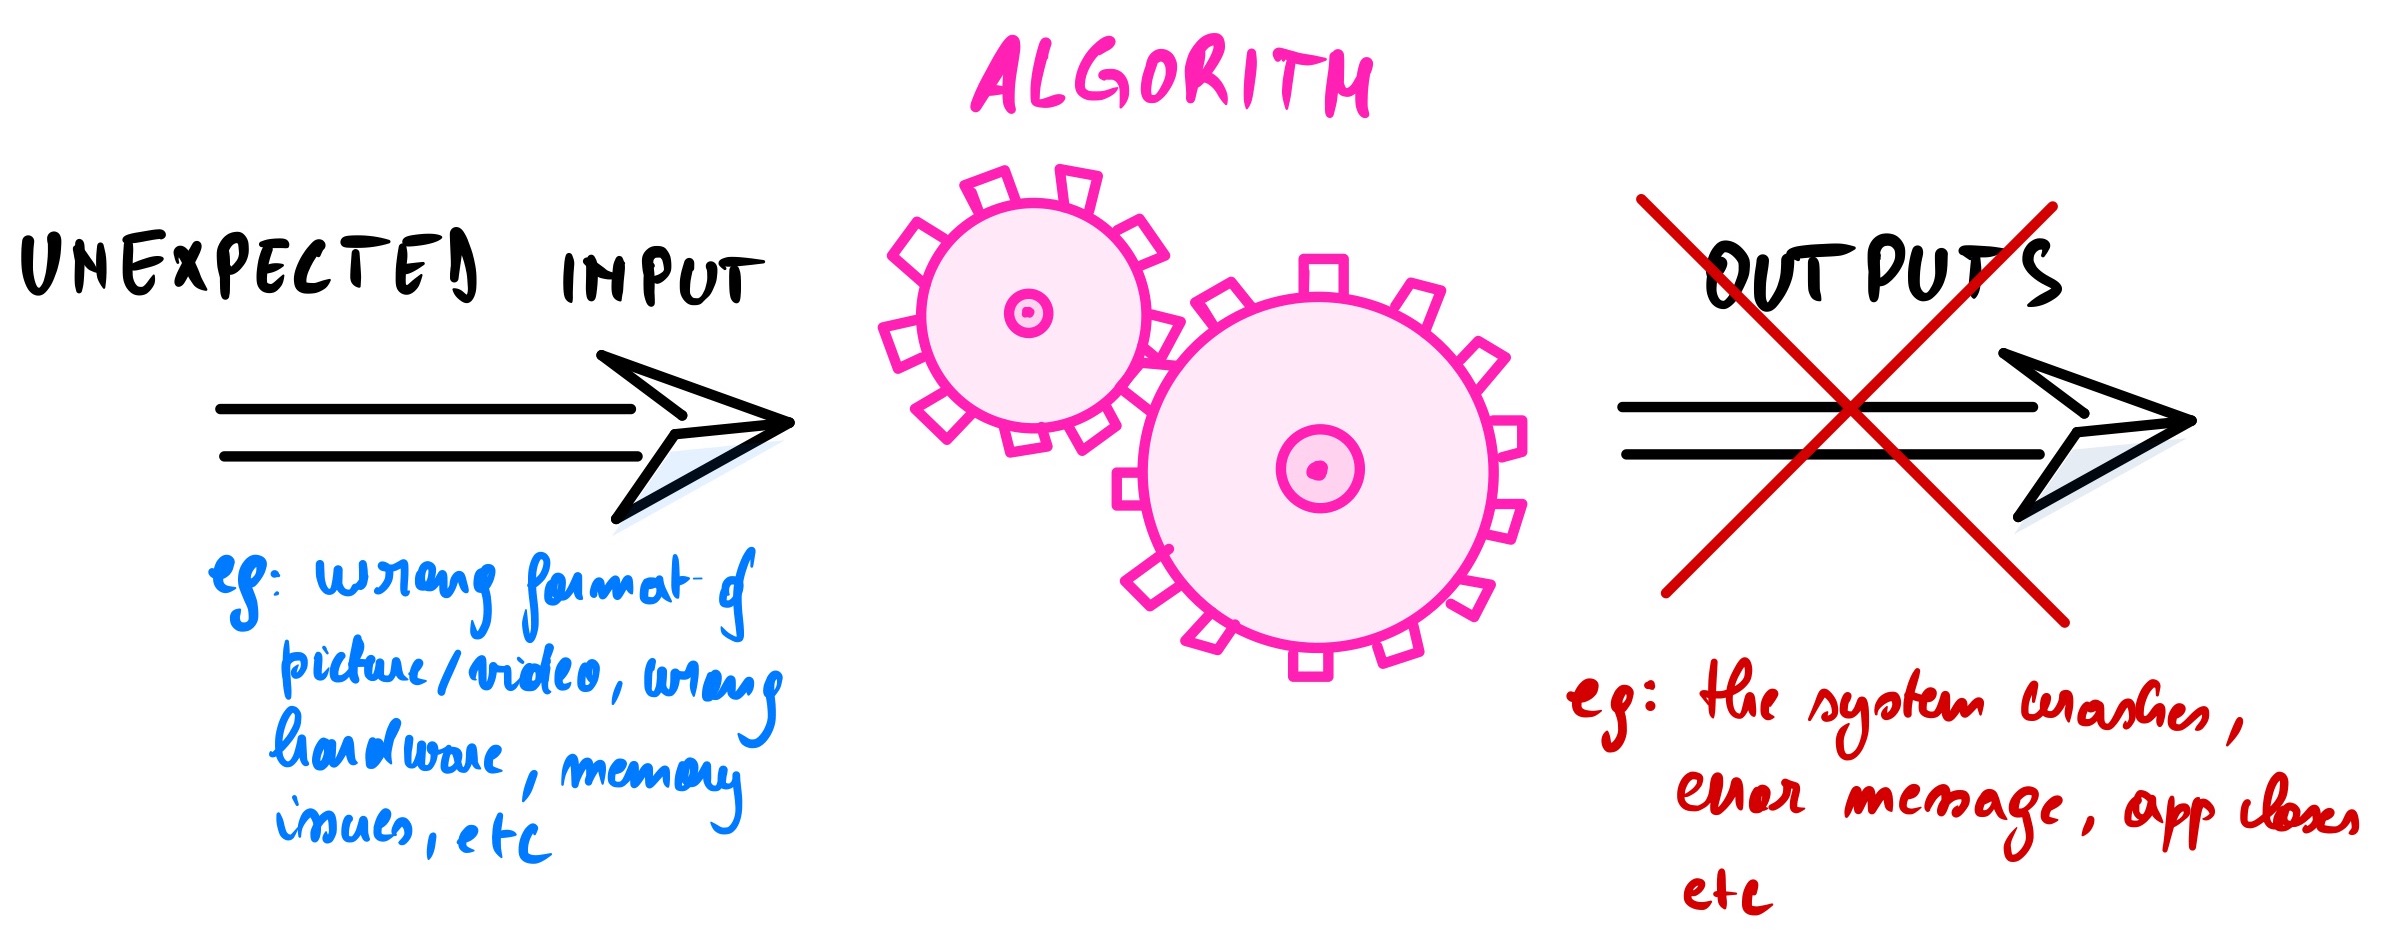 ALGORITM
UNEXPECTED INPUT
OUTPUTS
eg: wrong format of
picture/video, wrong
hardware, memory
issues, etc
eg: the system crashes,
error message, app closes
etc